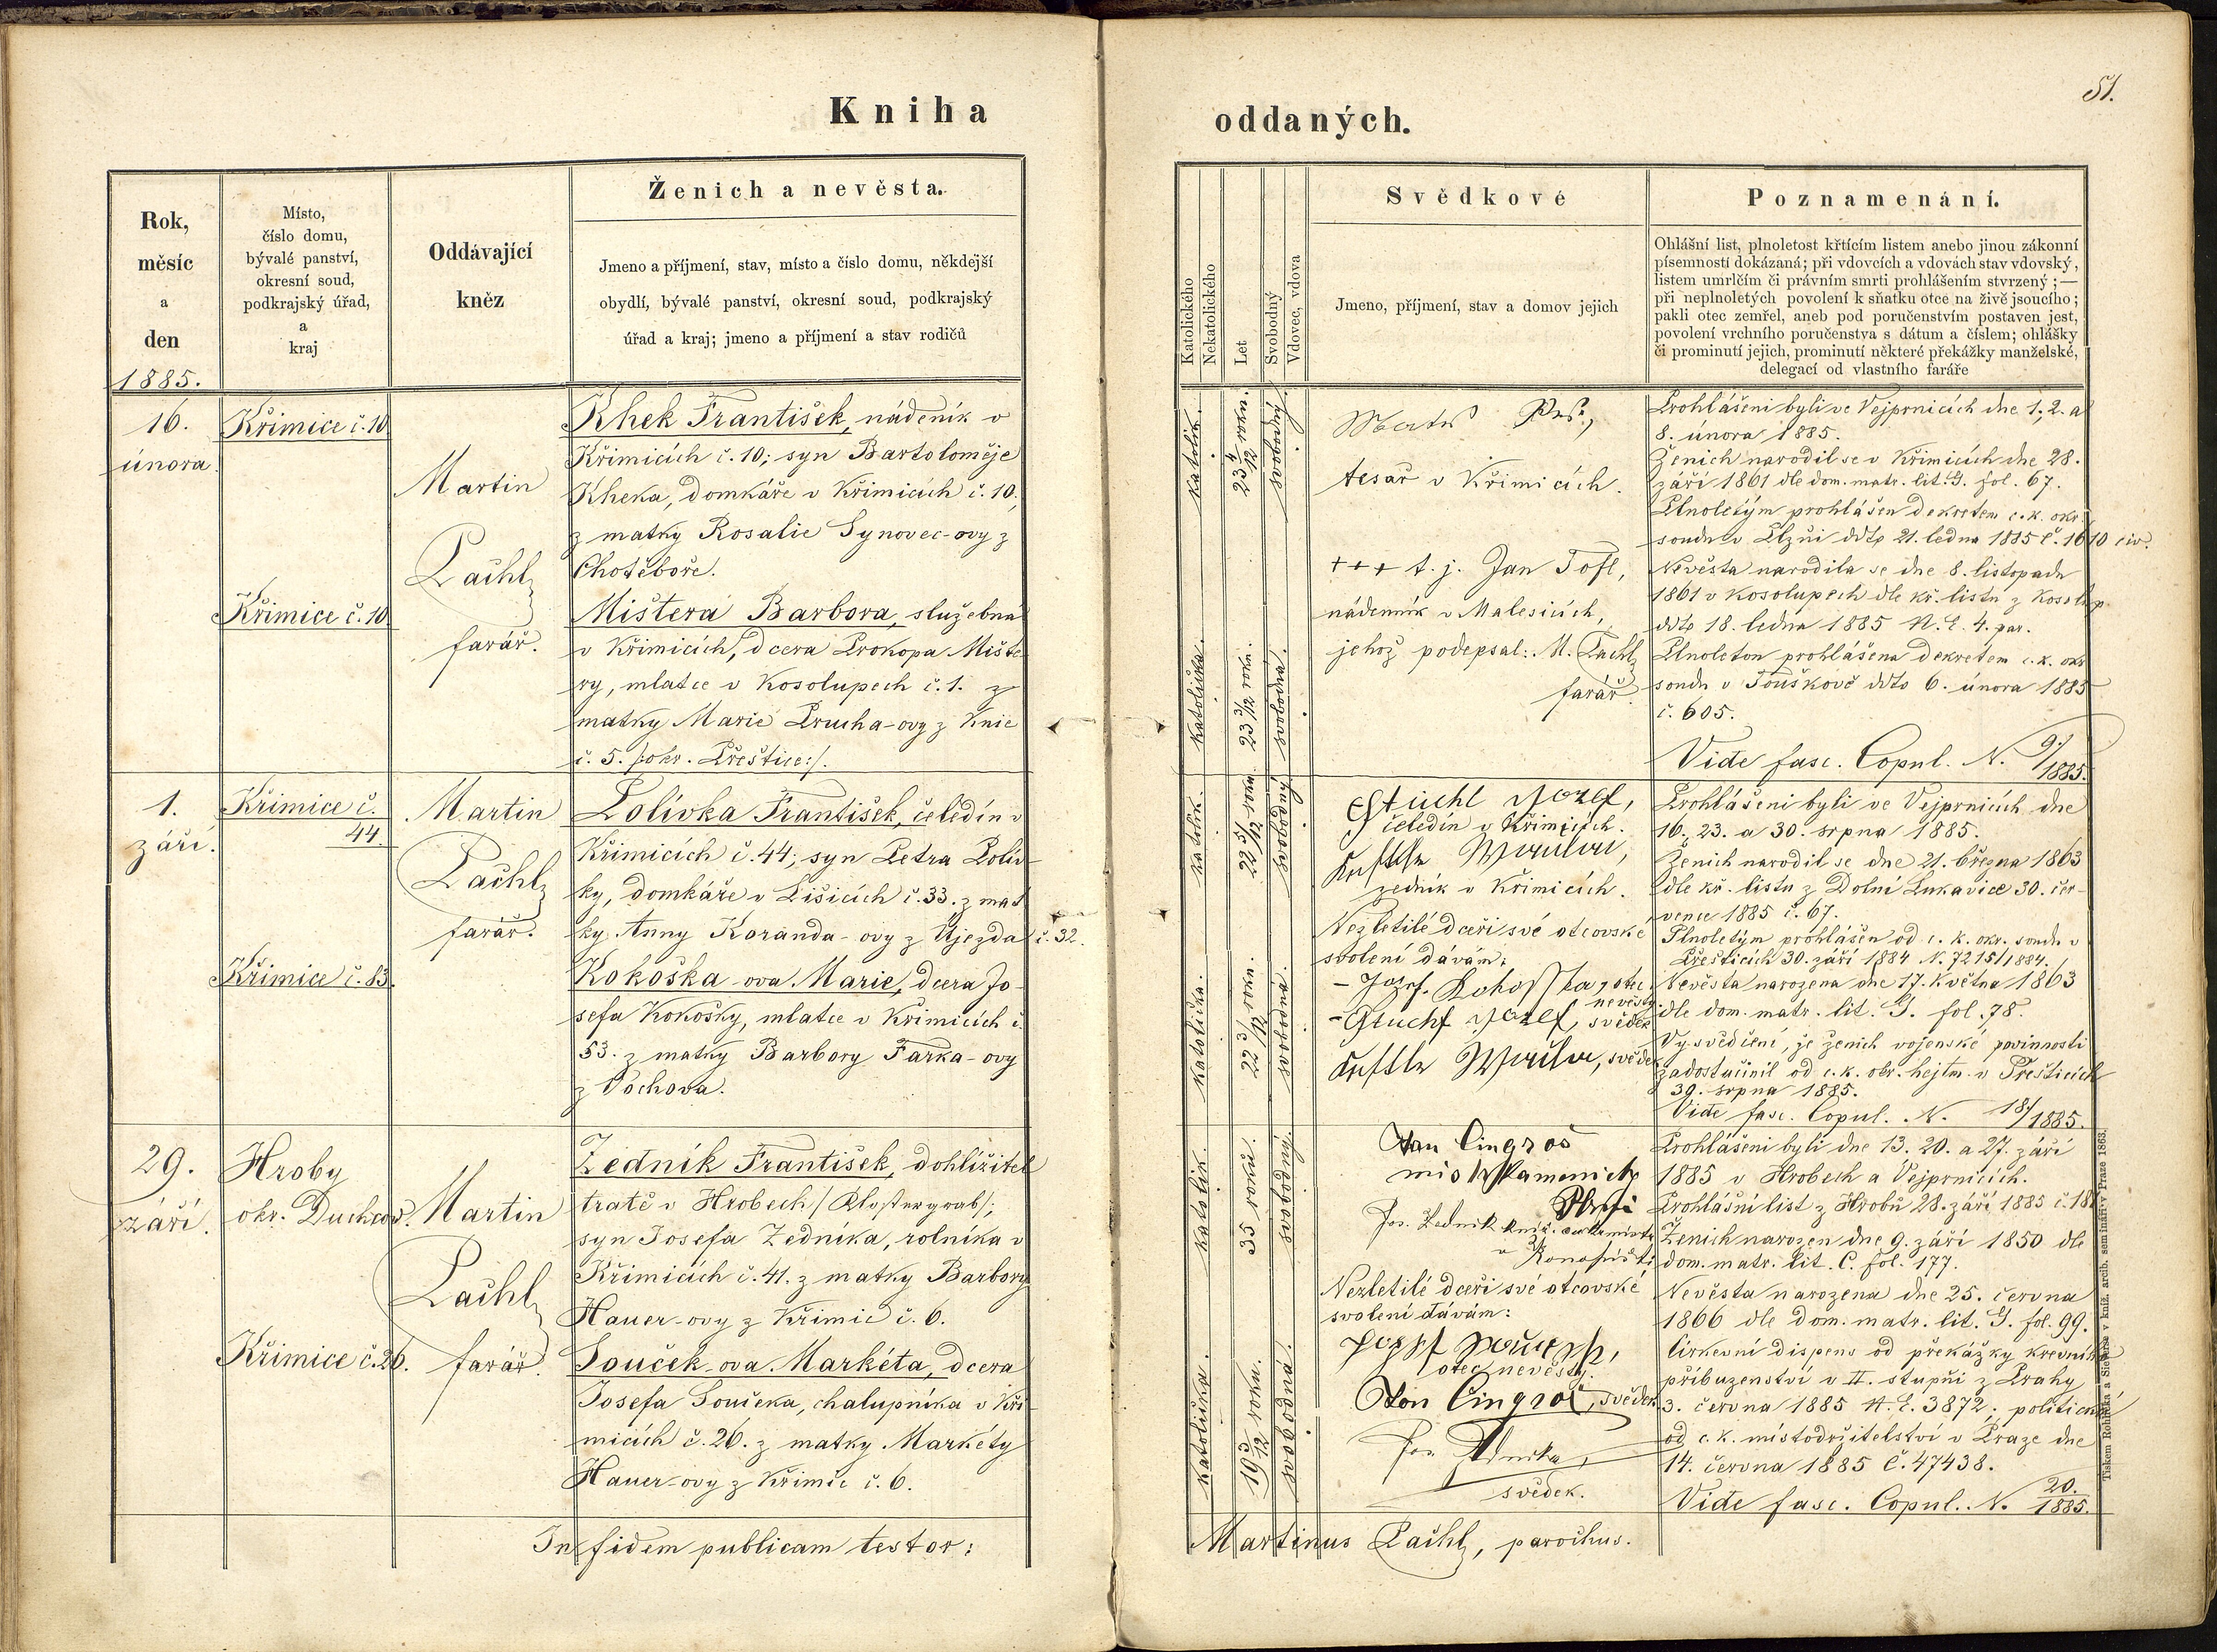 Kniha
Rok,
měsíc
a
den
1885.
Místo,
číslo domu,
bývalé panství,
okresní soud,
podkrajský úřad,
a
kraj
Oddávající
kněz
Ženich a nevěsta.
Jmeno a příjmení, stav, místo a číslo domu, někdejší
obydlí, bývalé panství, okresní soud, podkrajský
úřad a kraj; jmeno a příjmení a stav rodičů
16.
února.
Křimice č. 10
Křimice č. 10
Martin
Pačhl
farář.
Khek František, nádeník v
Křimicích č. 10; syn Bartoloměje
Kheka, domkáře v Křimicích č. 10,
z matky Rosalie Synovec-ovy z
Chotěboře.
Mištera Barbora, služebná
v Křimicích, dcera Prokopa Mište
ry, mlatce v Kosolupech č. 1. z
matky Marie Prucha-ovy z Knic
č. 5. /:okr. Přeštice:/.
1.
září.
Křimice č.
44.
Křimice č. 83.
Martin
Pačhl
farář.
Polívka František, čeledín v
Křimicích č. 44; syn Petra Polív-
ky, domkáře v Lišicích č. 33. z mat
ky Anny Karanda-ovy z Újezda č. 32.
Kokoška-ova Marie, dcera Jo-
sefa Kokošky, mlatce v Křimicích č.
53. z matky Barbory Farka-ovy
z Vochova.
29.
září.
Hroby
okr. Duchcov.
Křimice č. 26.
Martin
Pačhl
farář.
Zedník František, dohlížitel
tratě v Hrobech /Klostergrab/;
syn Josefa Zedníka, rolníka v
Křimicích č. 41. z matky Barbory
Hauer-ovy z Křimic č. 6.
Souček-ova Markéta, dcera
Josefa Součeka, chalupníka v Kři-
micích č. 26. z matky Markéty
Hauer-ovy z Křimic č. 6.
In fidem publicam testor:
51.
oddaných.
Katolického
Nekatolického
Let
Svobodný
Vdovec, vdova
Svědkové
Jmeno, příjmení, stav a domov jejich
Poznamenání.
Ohlášní list, plnoletost křtícím listem anebo jinou zákonní
písemností dokázaná; při vdovcích a vdovách stav vdovský,
listem umrlčím či právním smrti prohlášením stvrzený;—
při neplnoletých povolení k sňatku otce na živě jsoucího;
pakli otec zemřel, aneb pod poručenstvím postaven jest,
povolení vrchního poručenstva s dátum a číslem; ohlášky
či prominutí jejich, prominutí některé překážky manželské,
delegací od vlastního faráře
katolík.
23 4/12 rokn.
svobodný
katolička.
23 3/12 roku.
svobodná.
tesař v Křimicích.
+++ t. j. Jan Tofl,
nádenník v Malesicích,
jehož podepsal: M. Pačhl
farář.
Prohlášeni byli ve Vejprnicích dne 1., 2. a
8. února 1885.
Ženich narodil se v Křimicích dne 28.
září 1861 dle dom. matr. lit. G. fol. 67.
Plnoletým prohlášen dekretem c. k. okr.
soudu v Plzni ddto 21. ledna 1885 č. 1610 civ.
Nevěsta narodila se dne 8. listopadu
1861 v Kosolupech dle kř. listu z Kosolup
ddto 18. ledna 1885 N. E. 4. par.
Plnoletou prohlášena dekretem c. k. okr
soudu v Touškově ddto 6. února 1885
č. 605.
Vide fasc. Copul. N. 9./1885.
katolík.
22 5/12 roku.
svobodný
katolička.
22 3/12 rokn.
svobodná.
Josef,
čeledín v Křimicích.
zedník v Křimicích.
Nezletilé dceři své otcovské
svolení dávám:
otec
nevěsty
svědek
svědek
Prohlášeni byli ve Vejprnicích dne
16., 23. a 30. srpna 1885.
Ženich narodil se dne 21. března 1863
dle kř. listu z Dolní Lukavice 30. čer-
vence 1885 č. 67.
Plnoletým prohlášen od c. k. okr. soudu v
Přešticích 30. září 1884 N. 7215/1884.
Nevěsta narozena dne 17. Května 1863
dle dom. matr. lit. G. fol. 78.
Vysvědčení, že ženich vojenské povinnosti
zadostučinil od c. k. okr. hejtm. v Přešticích
39. srpna 1885.
Vide fasc. Copul. N. 18/1885.
katolík.
35 roků.
svobodný.
katolička.
19 3/12 roku.
svobodná.
Jan Cingroš
Jos. Zedník
Nezletilé dceři své otcovské
svolení dávám:
otec nevěsty.
Jan Cingroš, svědek
svědek.
Prohlášeni byli dne 13. 20. a 27. září
1885 v Hrobech a Vejprnicích.
Prohlášní list z Hrobů 28. září 1885 č. 18
Ženich narozen dne 9. září 1850 dle
dom. matr. lit. C. fol. 177.
Nevěsta narozena dne 25. června
1866 dle dom. matr. lit. G. fol. 99.
Církevní dispens od překážky krevního
příbuzenství v II. stupni z Prahy
3. června 1885 N. E. 3872; politické
od c. k. místodržitelství v Praze dne
14. června 1885 č. 47438.
Vide fasc. Copul. N. 20./1885.
Martinus Pačhl, parochus.